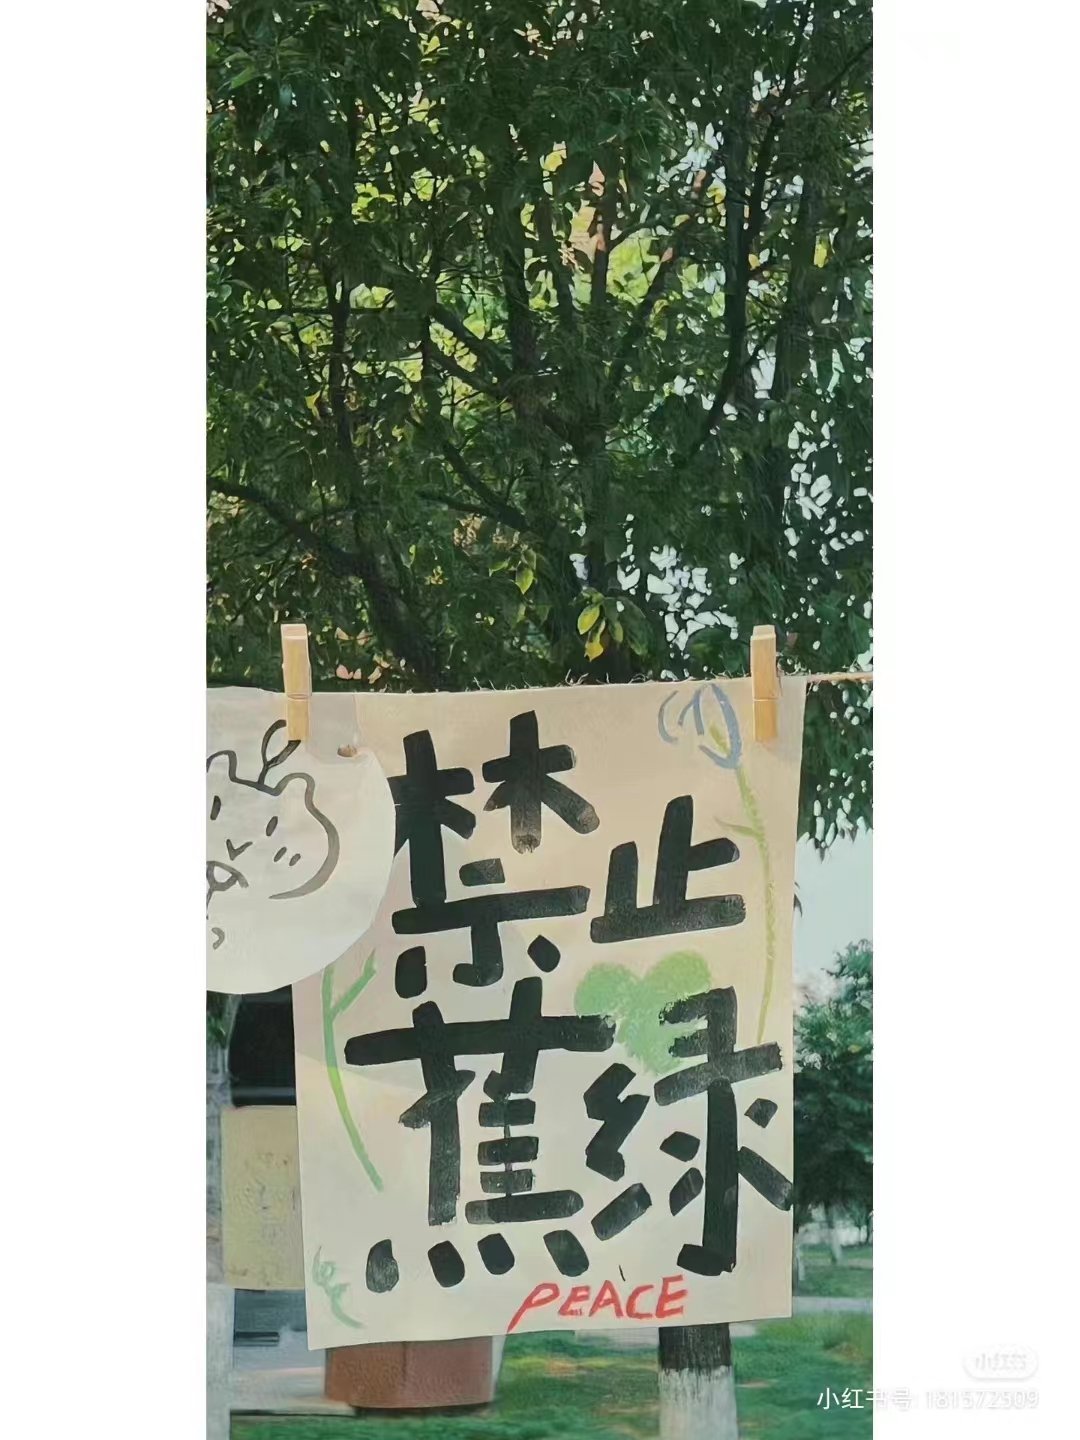 禁止
蕉绿
PEACE
小红书
小红书号: 181572509